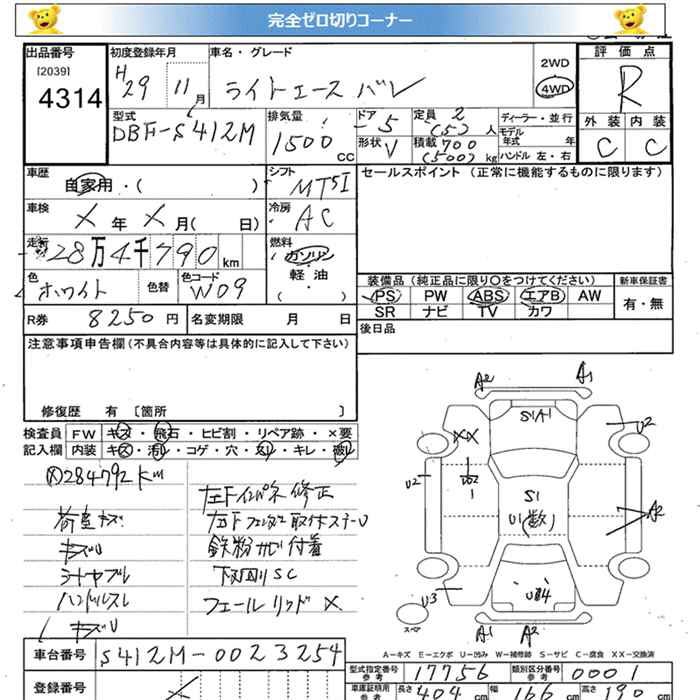 完全ゼロ切りコーナー
出品番号 初度登録年月 車名・グレード 2WD 評価点
[2039]
4314 H29 11月 ライトエースバン 4WD R
型式 排気量 ドア 定員 2 ディーラー・並行 外装 内装
DBF-S412M 1500 CC 5 (5)人 モデル年式 年 C C
形状 V 積載 700 (500)kg ハンドル 左・右
車歴 シフト セールスポイント (正常に機能するものに限ります)
自家用・( ) MT5I
車検 冷房
X年X月( 日) AC
走行 燃料
28万4千790km ガソリン
軽油
( ・ )
色 色替 色コード 装備品 (純正品に限り○をつけてください) 新車保証書
ホワイト W09 PS PW ABS エアB AW 有・無
SR ナビ TV カワ
R券 8250円 名変期限 月 日 後日品
注意事項申告欄 (不具合内容等は具体的に記入して下さい)
修復歴 有 [箇所 ]
検査員 FW キズ・飛石・ヒビ割・リペア跡・×要
記入欄 内装 キズ・汚れ・コゲ・穴・スレ・キレ・破れ
284792km
左Fインパネ修正
荷室キズ
鉄粉サビ付着
キズU
シートヤブレ 下回りSC
ハンドルスレ フェールリッドX
キズU
A2 A1
S1A1
U2
XX
U2
1
S1
U1(数)
A2
U3
A1 A2
スペア
A-キズ E-エクボ U-凹み W-補修跡 S-サビ C-腐食 XX-交換済
車台番号 S412M-0023254
型式指定番号 参考 17756 類別区分番号 参考 0001
登録番号 車庫証明用 参考 長さ 404cm 幅 166cm 高さ 190cm